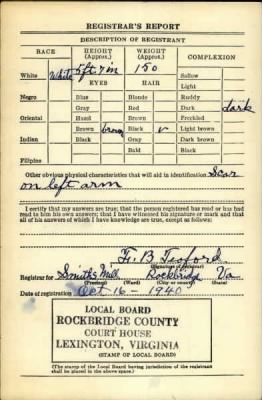 REGISTRAR'S REPORT
DESCRIPTION OF REGISTRANT
RACE HEIGHT (Approx.) WEIGHT (Approx.) COMPLEXION
White White 5 ft 7 in 150 Sallow
EYES HAIR Light
Negro Blue Blonde Ruddy
Gray Red Dark dark
Oriental Hazel Brown Freckled
Brown brown Black v Light brown
Indian Black Gray Dark brown
Bald Black
Filipino
Other obvious physical characteristics that will aid in identification Scar
on left arm
I certify that my answers are true; that the person registered has read or has had
read to him his own answers; that I have witnessed his signature or mark and that
all of his answers of which I have knowledge are true, except as follows:
B
(Signature of registrar)
Registrar for Smiths Mill Rockbridge Va
(Precinct) (Ward) (City or county) (State)
Date of registration Oct. 16 1940
LOCAL BOARD
ROCKBRIDGE COUNTY
COURT HOUSE
LEXINGTON, VIRGINIA
(STAMP OF LOCAL BOARD)
(The stamp of the Local Board having jurisdiction of the registrant
shall be placed in the above space.)